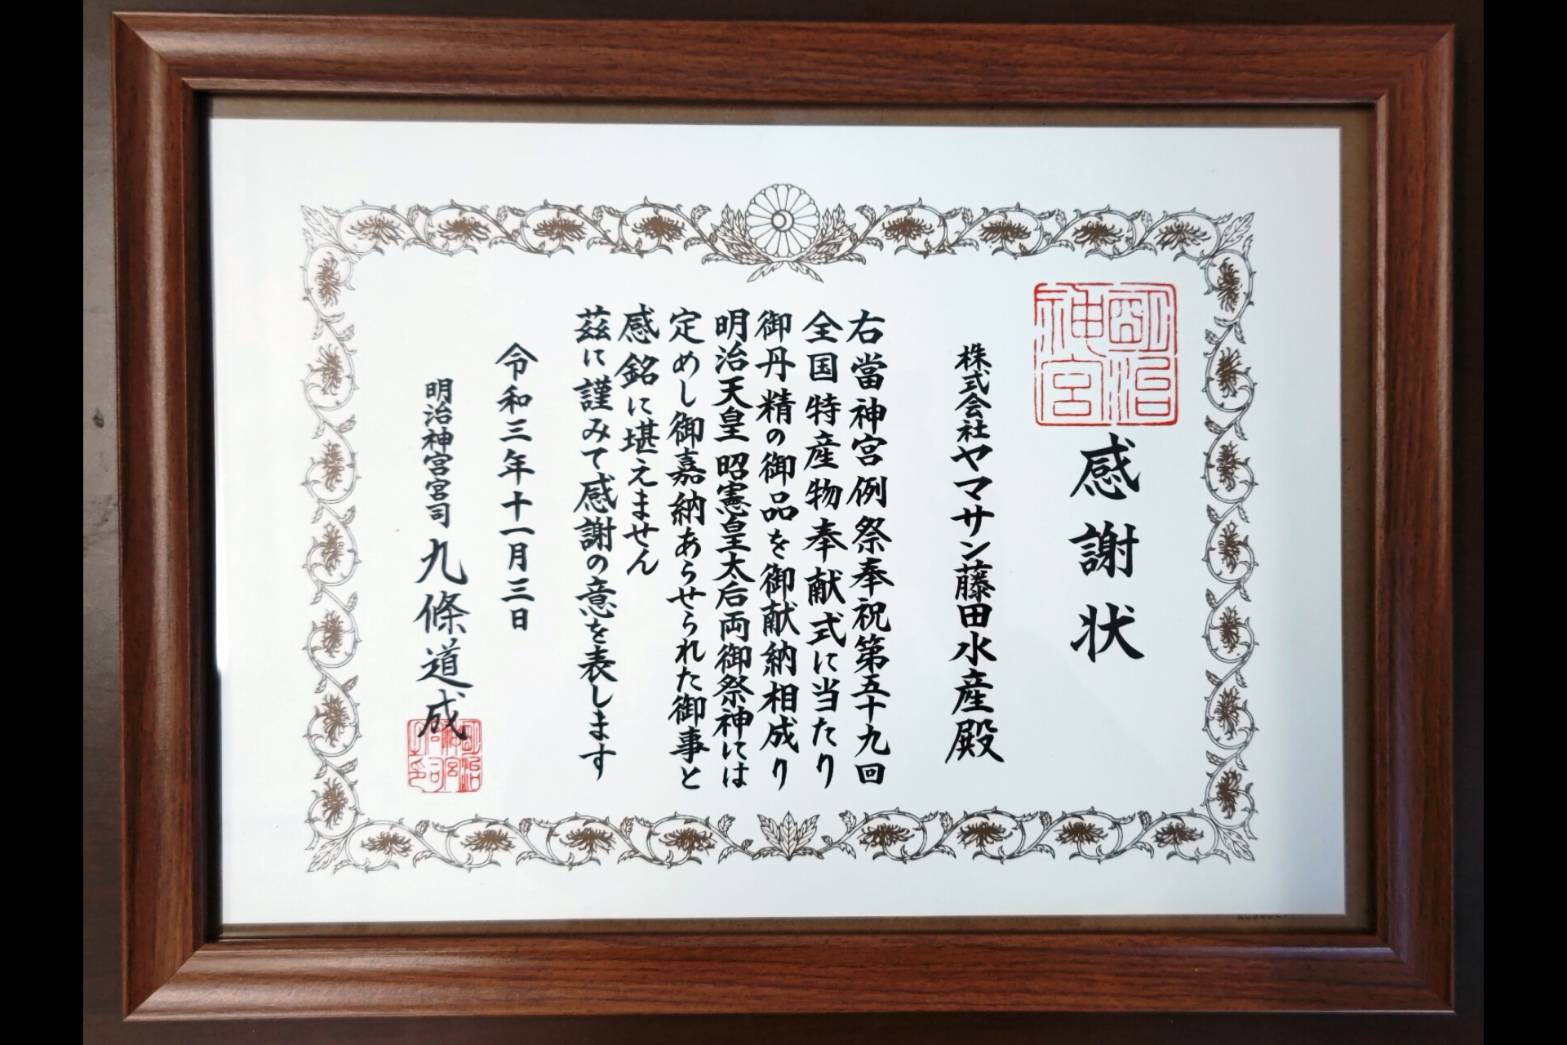 明治神宮
感謝状
株式会社ヤマサン藤田水産殿
右當神宮例祭奉祝第五十九回
全国特産物奉献式に当たり
御丹精の御品を御献納相成り
明治天皇昭憲皇太后両御祭神には
定めし御嘉納あらせられた御事と
感銘に堪えません
茲に謹みて感謝の意を表します
令和三年十一月三日
明治神宮宮司九條道成